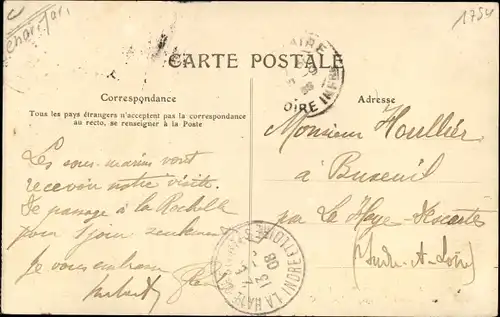 1754
CARTE POSTALE
AIRE
09
OIRE INFRE
Correspondance
Tous les pays étrangers n'acceptent pas la correspondance
au recto, se renseigner à la Poste
Adresse
Les sous-marins vont
recevoir notre visite.
De passage à la Rochelle
pour 1 jour seulement
Je vous embrasse
Monsieur Houllier
à Buxeuil
par La Haye-Descartes
(Indre-et-Loire)
LA HAYE
13
08